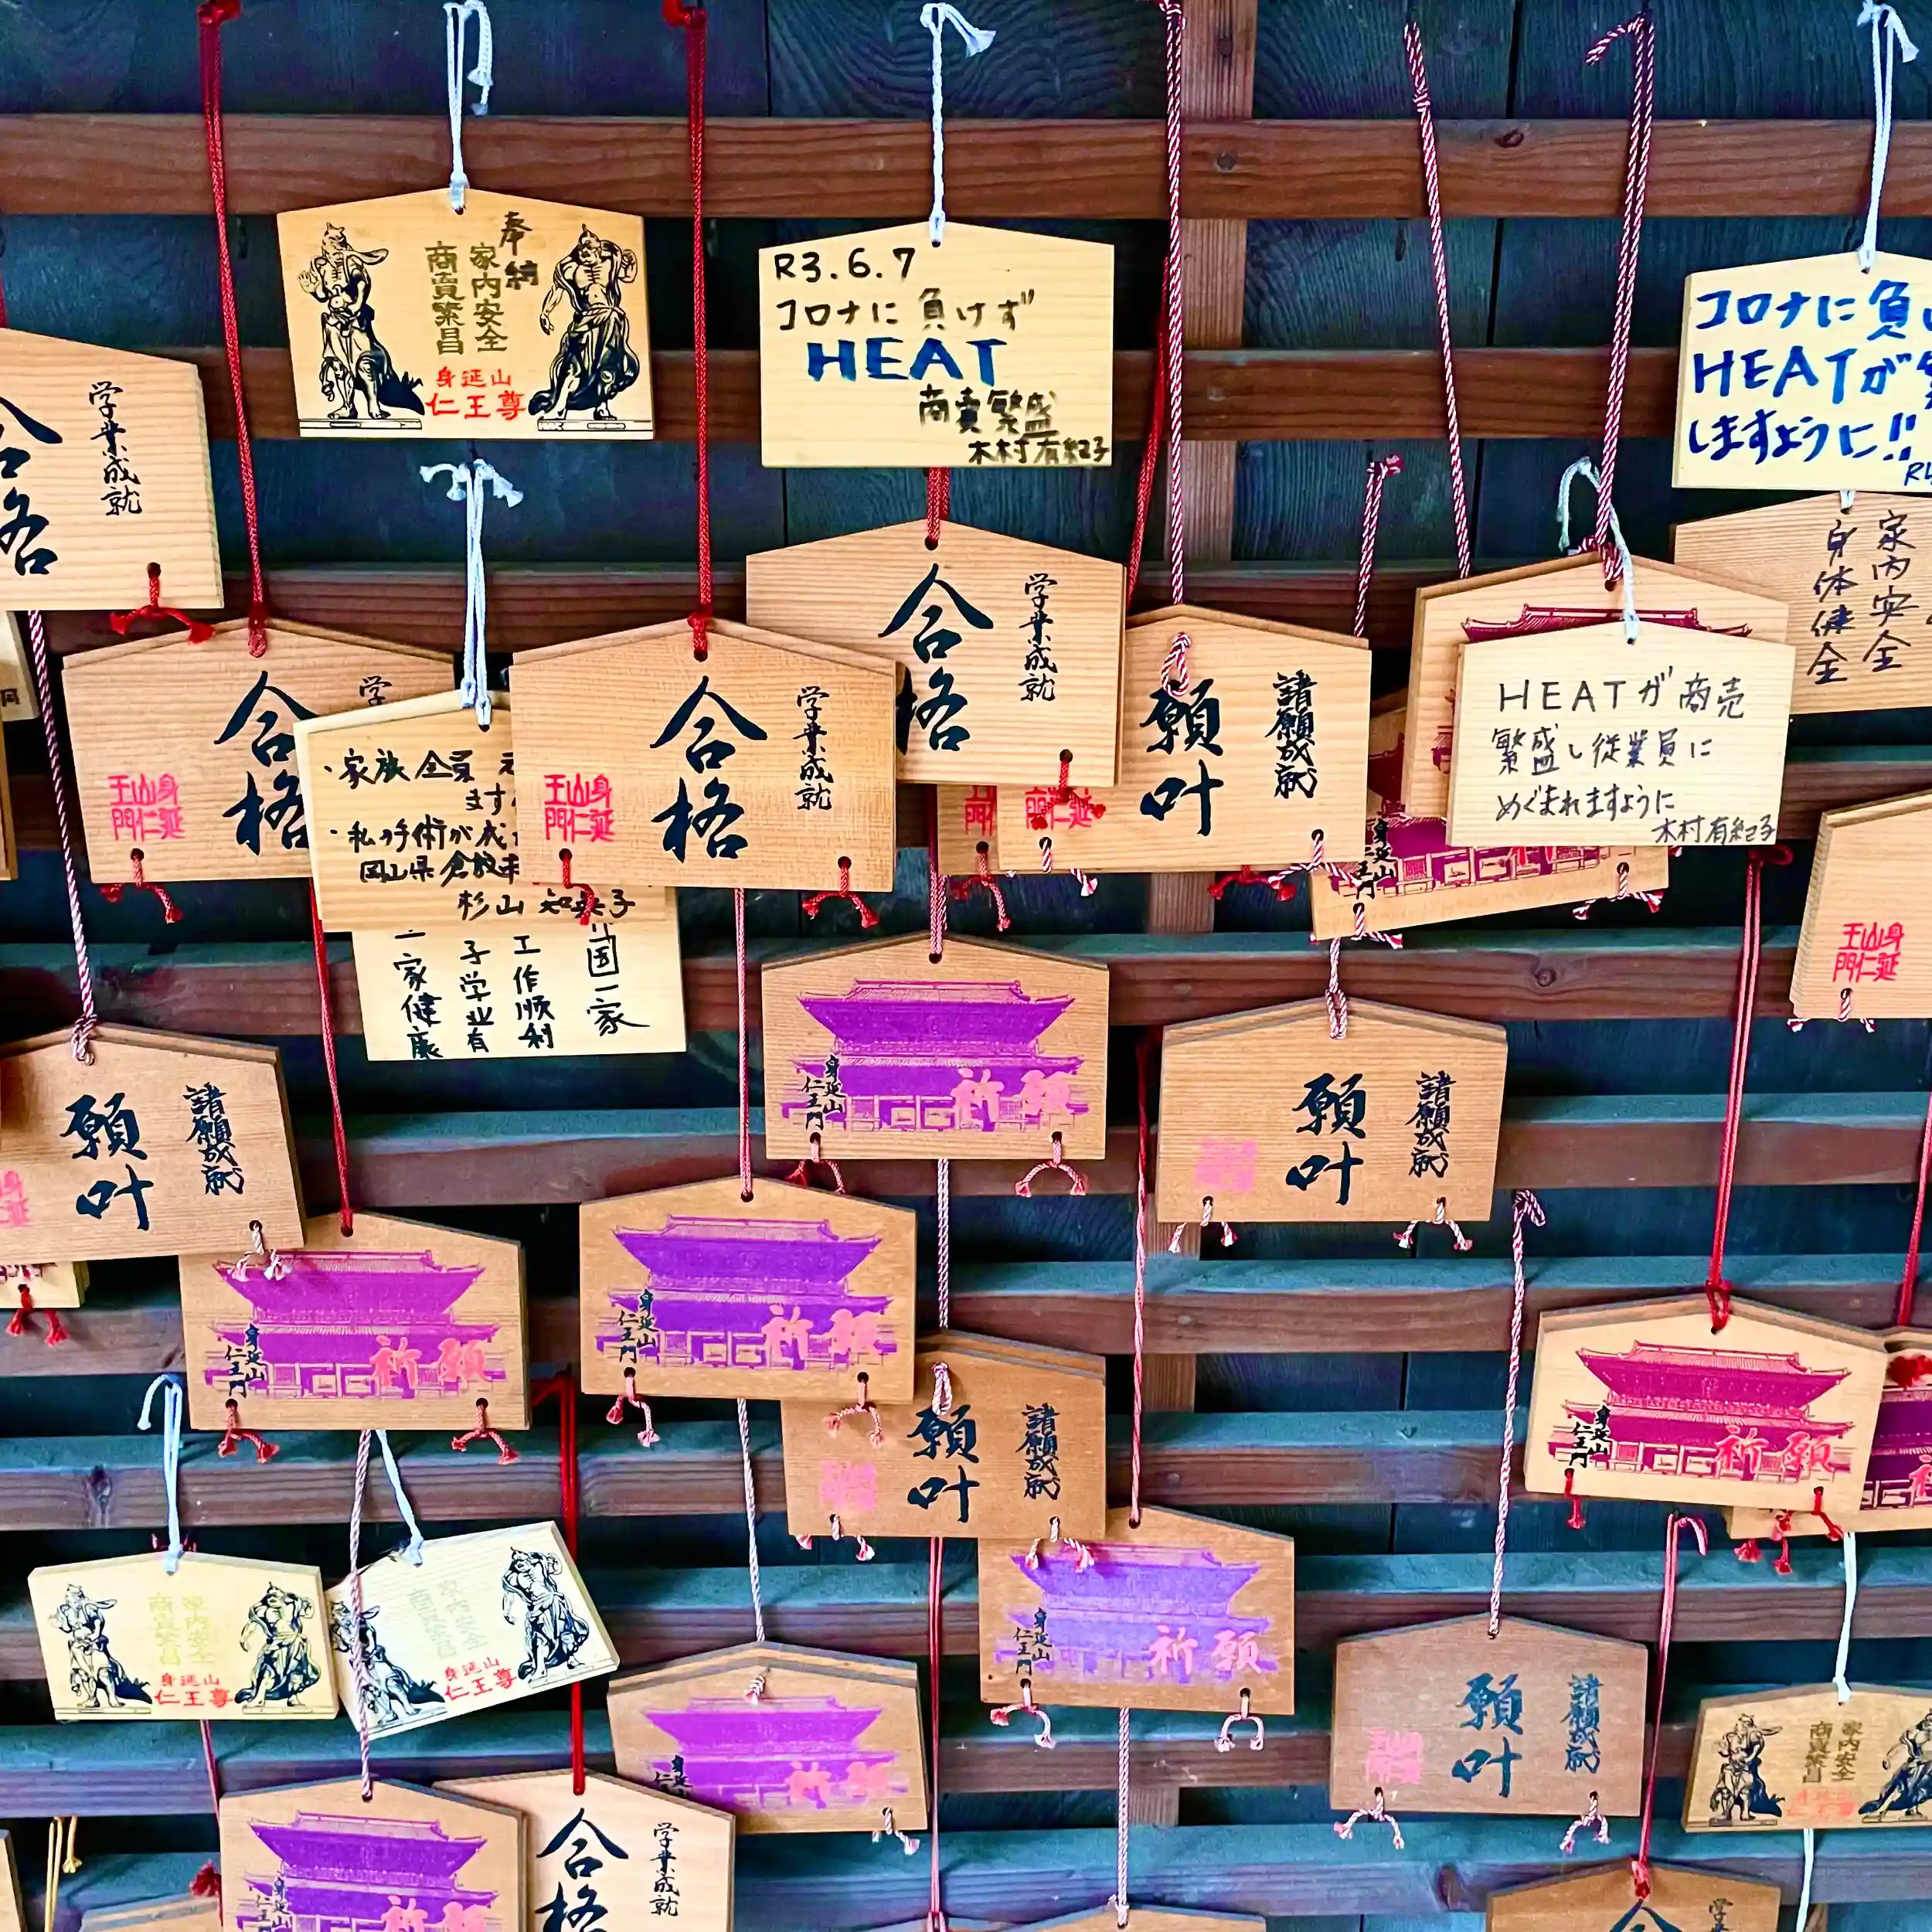 奉納
家内安全
商賣繁昌
身延山
仁王尊
R3.6.7
コロナに負けず
HEAT
商賣繁盛
木村有紀子
コロナに負
HEATが
しますように!!
家内安全
身体健全
学業成就
合格
学業成就
合格
学
合格
身延
山仁
王門
・家族全員
ます
・私の手術が成
岡山県倉敷
杉山
国一家
工作順利
子学业有
一家健康
学業成就
合格
身延
山仁
王門
諸願成就
願叶
HEATが商売
繁盛し従業員に
めぐまれますように
木村有紀子
身延山
仁王門
身延
山仁
王門
諸願成就
願叶
身延山
仁王門
祈願
諸願成就
願叶
身延山
仁王門
祈願
身延山
仁王門
祈願
諸願成就
願叶
身延山
仁王門
祈願
家内安全
商賣繁昌
身延山
仁王尊
家内安全
商賣繁昌
身延山
仁王尊
身延山
仁王門
祈願
祈願
諸願成就
願叶
家内安全
商賣繁昌
祈願
学業成就
合格
学業